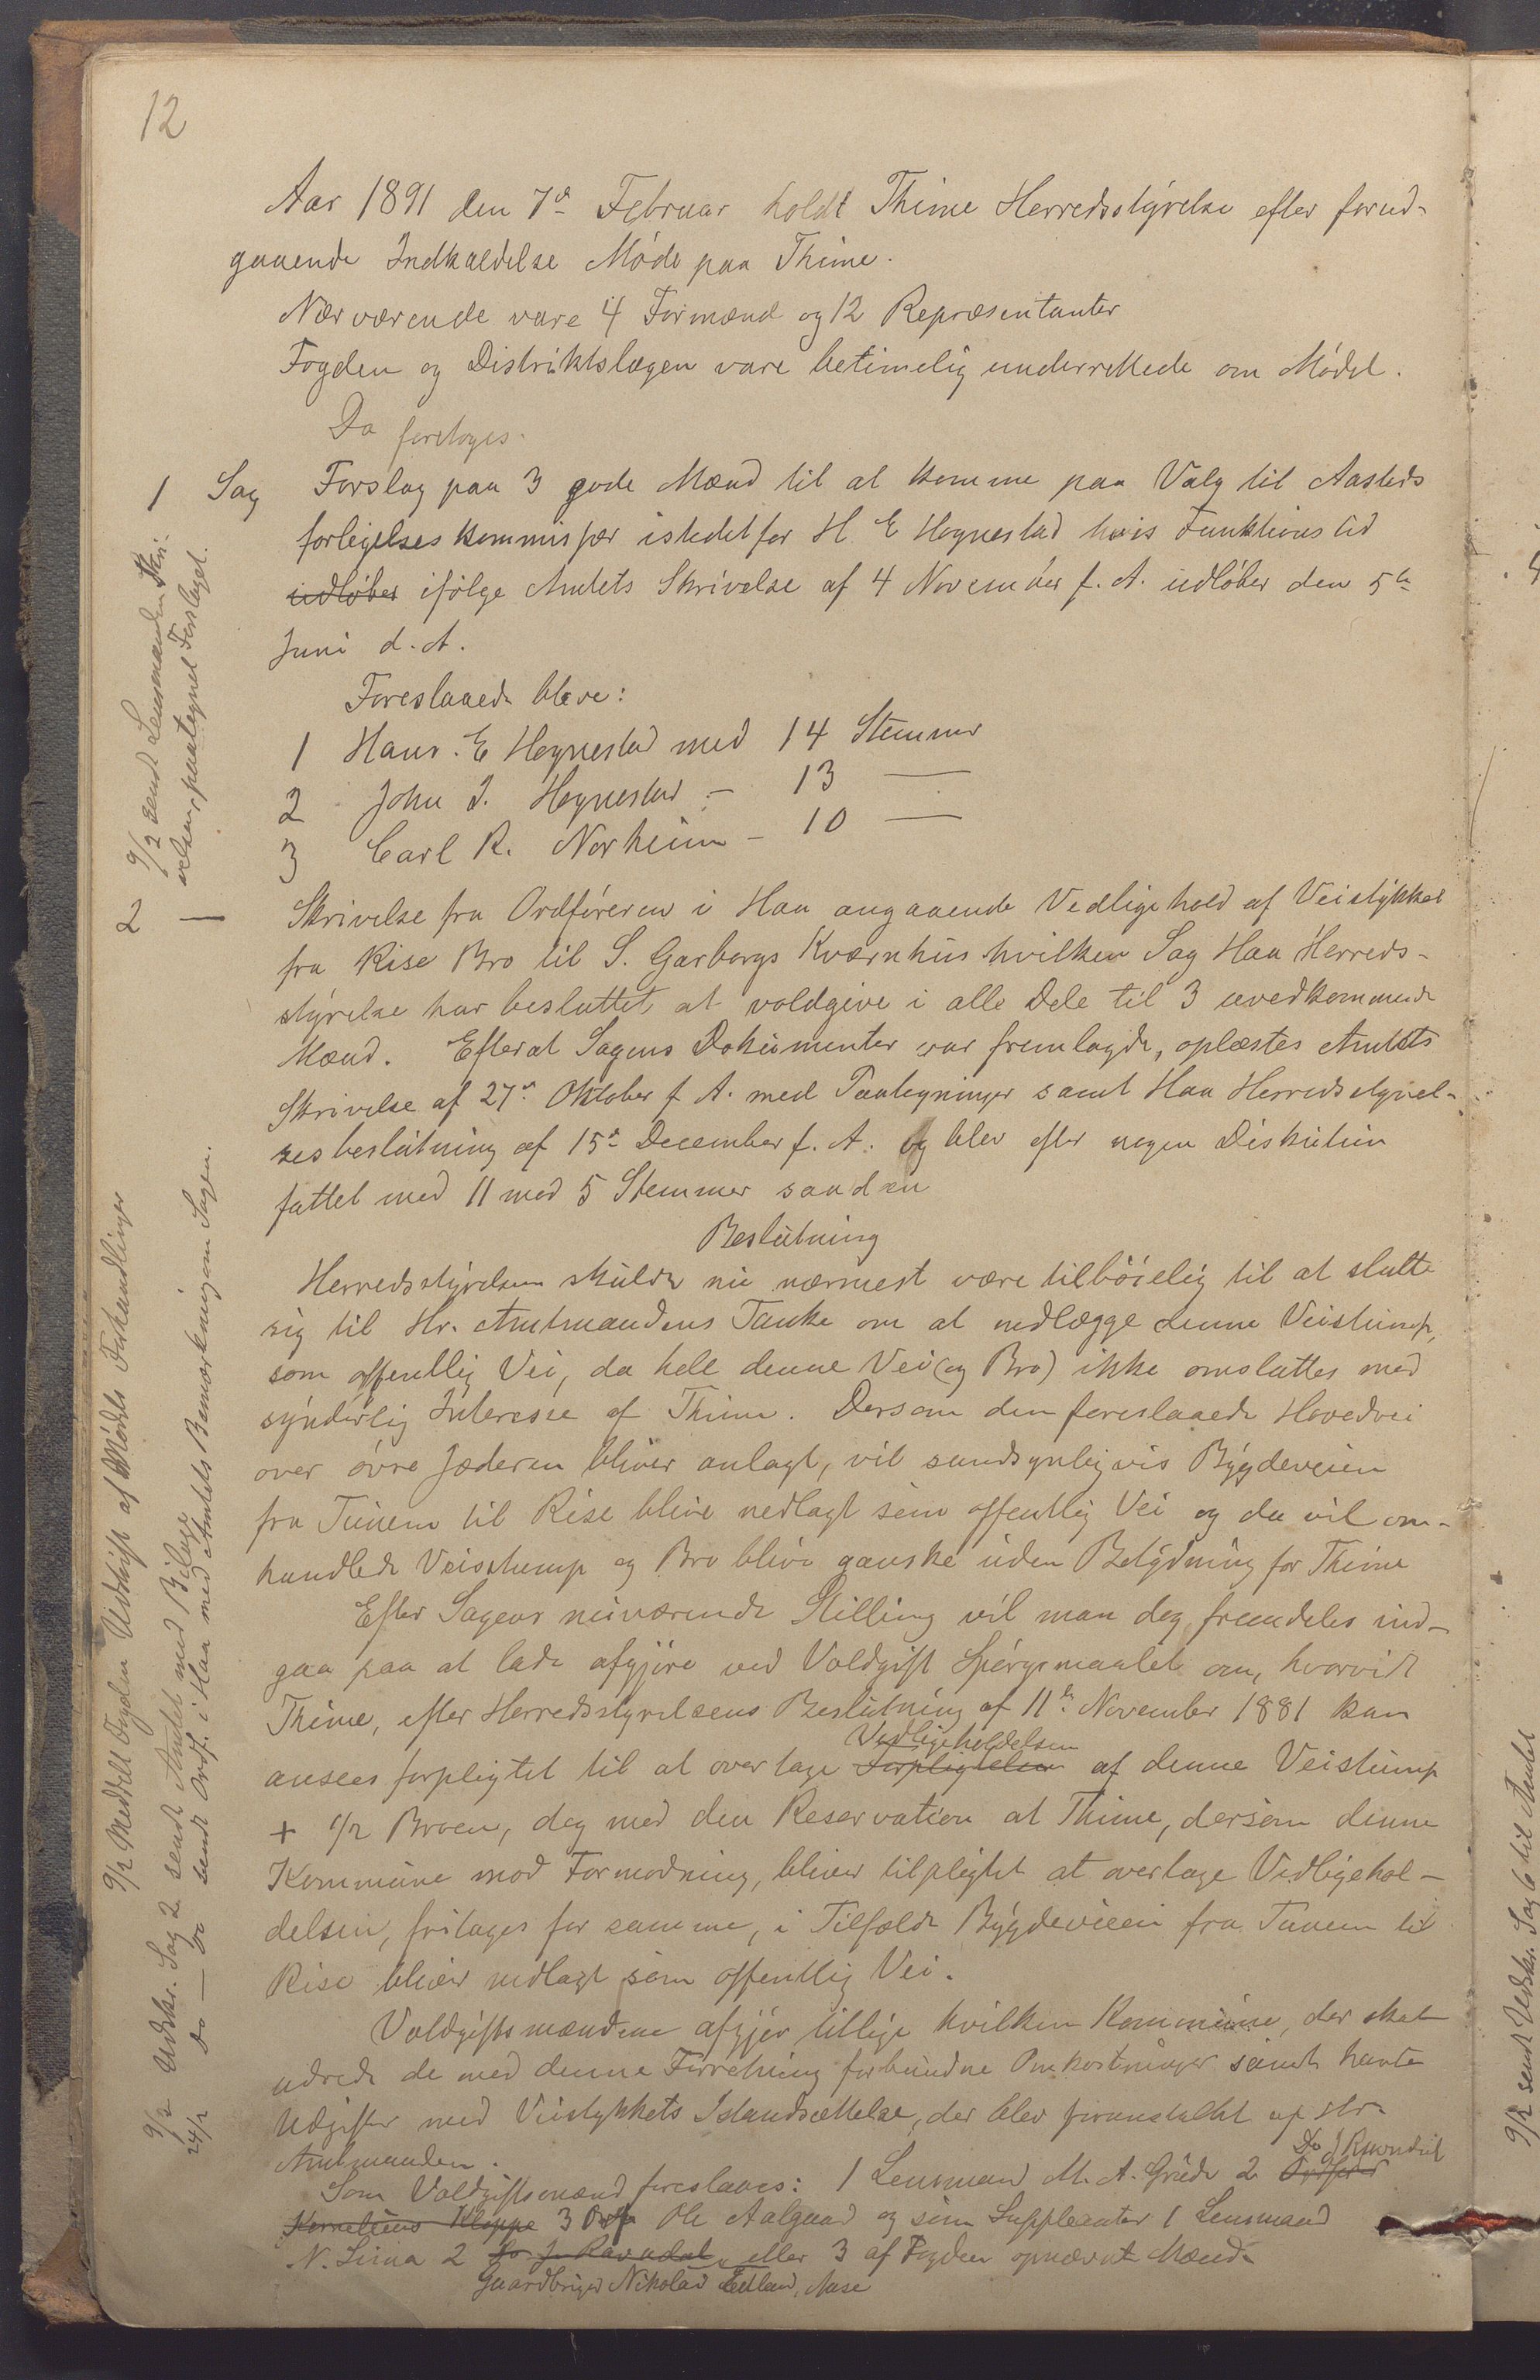 12
Aar 1891 den 7de Februar holdt Thime Herredsstyrelse efter forud-
gaaende Indkaldelse Møde paa Thime.
Nærværende vare 4 Formænd og 12 Repræsentanter
Fogden og Distriktslægen vare betimelig underrettede om Mødet.
Da foretoges.
1 Sag Forslag paa 3 gode Mænd til at komme paa Valg til Aasteds
forligelseskommissær istedetfor H. E Hognestad hvis Funktionstid
udløber ifølge Amtets Skrivelse af 4 November f. A. udløber den 5te
Juni d. A.
Foreslaaede bleve:
1 Hans. E Hognestad med 14 Stemmer
2 John J. Hognestad - 13 —
3 Carl R. Norheim - 10 —
2 — Skrivelse fra Ordføreren i Haa angaaende Vedligehold af Veistykket
fra Rise Bro til S. Garborgs Kværnhus hvilken Sag Haa Herreds-
styrelse har besluttet at voldgive i alle Dele til 3 uvedkommende
Mænd. Efterat Sagens Dokumenter var fremlagde, oplæstes Amtets
Skrivelse af 27de Oktober f. A. med Paategninger samt Haa Herredsstyrel-
sesbeslutning af 15de December f. A. og blev efter nogen Diskution
fattet med 11 mod 5 Stemmer saadan
Beslutning
Herredsstyrelsen skulde nu nærmest være tilbøielig til at slutte
sig til Hr. Amtmandens Tanke om at nedlægge denne Veistump,
som offentlig Vei, da hele denne Vei (og Bro) ikke omfattes med
synderlig Interesse af Thime. Dersom den foreslaaede Hovedvei
over øvre Jæderen bliver anlagt, vil sandsynligvis Bygdeveien
fra Tunem til Rise blive nedlagt som offentlig Vei og da vil om-
handlede Veistump og Bro blive ganske uden Betydning for Thime
Efter Sagens nuværende Stilling vil man dog fremdeles ind-
gaa paa at lade afgjøre ved Voldgift Spørgsmaalet om, hvorvidt
Thime, efter Herredsstyrelsens Beslutning af 11te November 1881 kan
Vedligeholdelsen
ansees forpligtet til at overtage Forpligtelsen af denne Veistump
+ 1/2 Broen, dog med den Reservation at Thime, dersom denne
Kommune mod Formodning, bliver tilpligtet at overtage Vedligehol-
delsen, fritages for samme, i Tilfælde Bygdeveien fra Tunem til
Rise bliver nedlagt som offentlig Vei.
Voldgiftsmændene afgjør tillige hvilken Kommune, der skal
udrede de med denne Forretning forbundne Omkostninger samt havte
Udgifter med Veistykkets Istandsættelse, der blev foranstaltet af Hr.
Amtmanden.
Do J Ravndal
Som Voldgiftsmænd foreslaaes: 1 Lensmand M. A. Grude 2 Ordfører
Kornelius Kleppe 3 Ordf. Ole Aalgaard og som Suppleanter 1 Lensmand
N. Lima 2 Do J. Ravndal, eller 3 af Fogden opnævnte Mænd.
Gaardbruger Nikolai Edland, Nase
9/2 sendt Lensmanden Skri-
velsen, paategnet Forslaget.
9/2 Meddelt Fogden Udskrift af Mødets Forhandlinger
9/2 Udskr. Sag 2 sendt Amtet med Bilage
24/2 Do — Do sendt Ordf. i Haa med Amtets Bemærkning om Sagen.
9/2 sendt Udskr. Sag 6 til Amtet